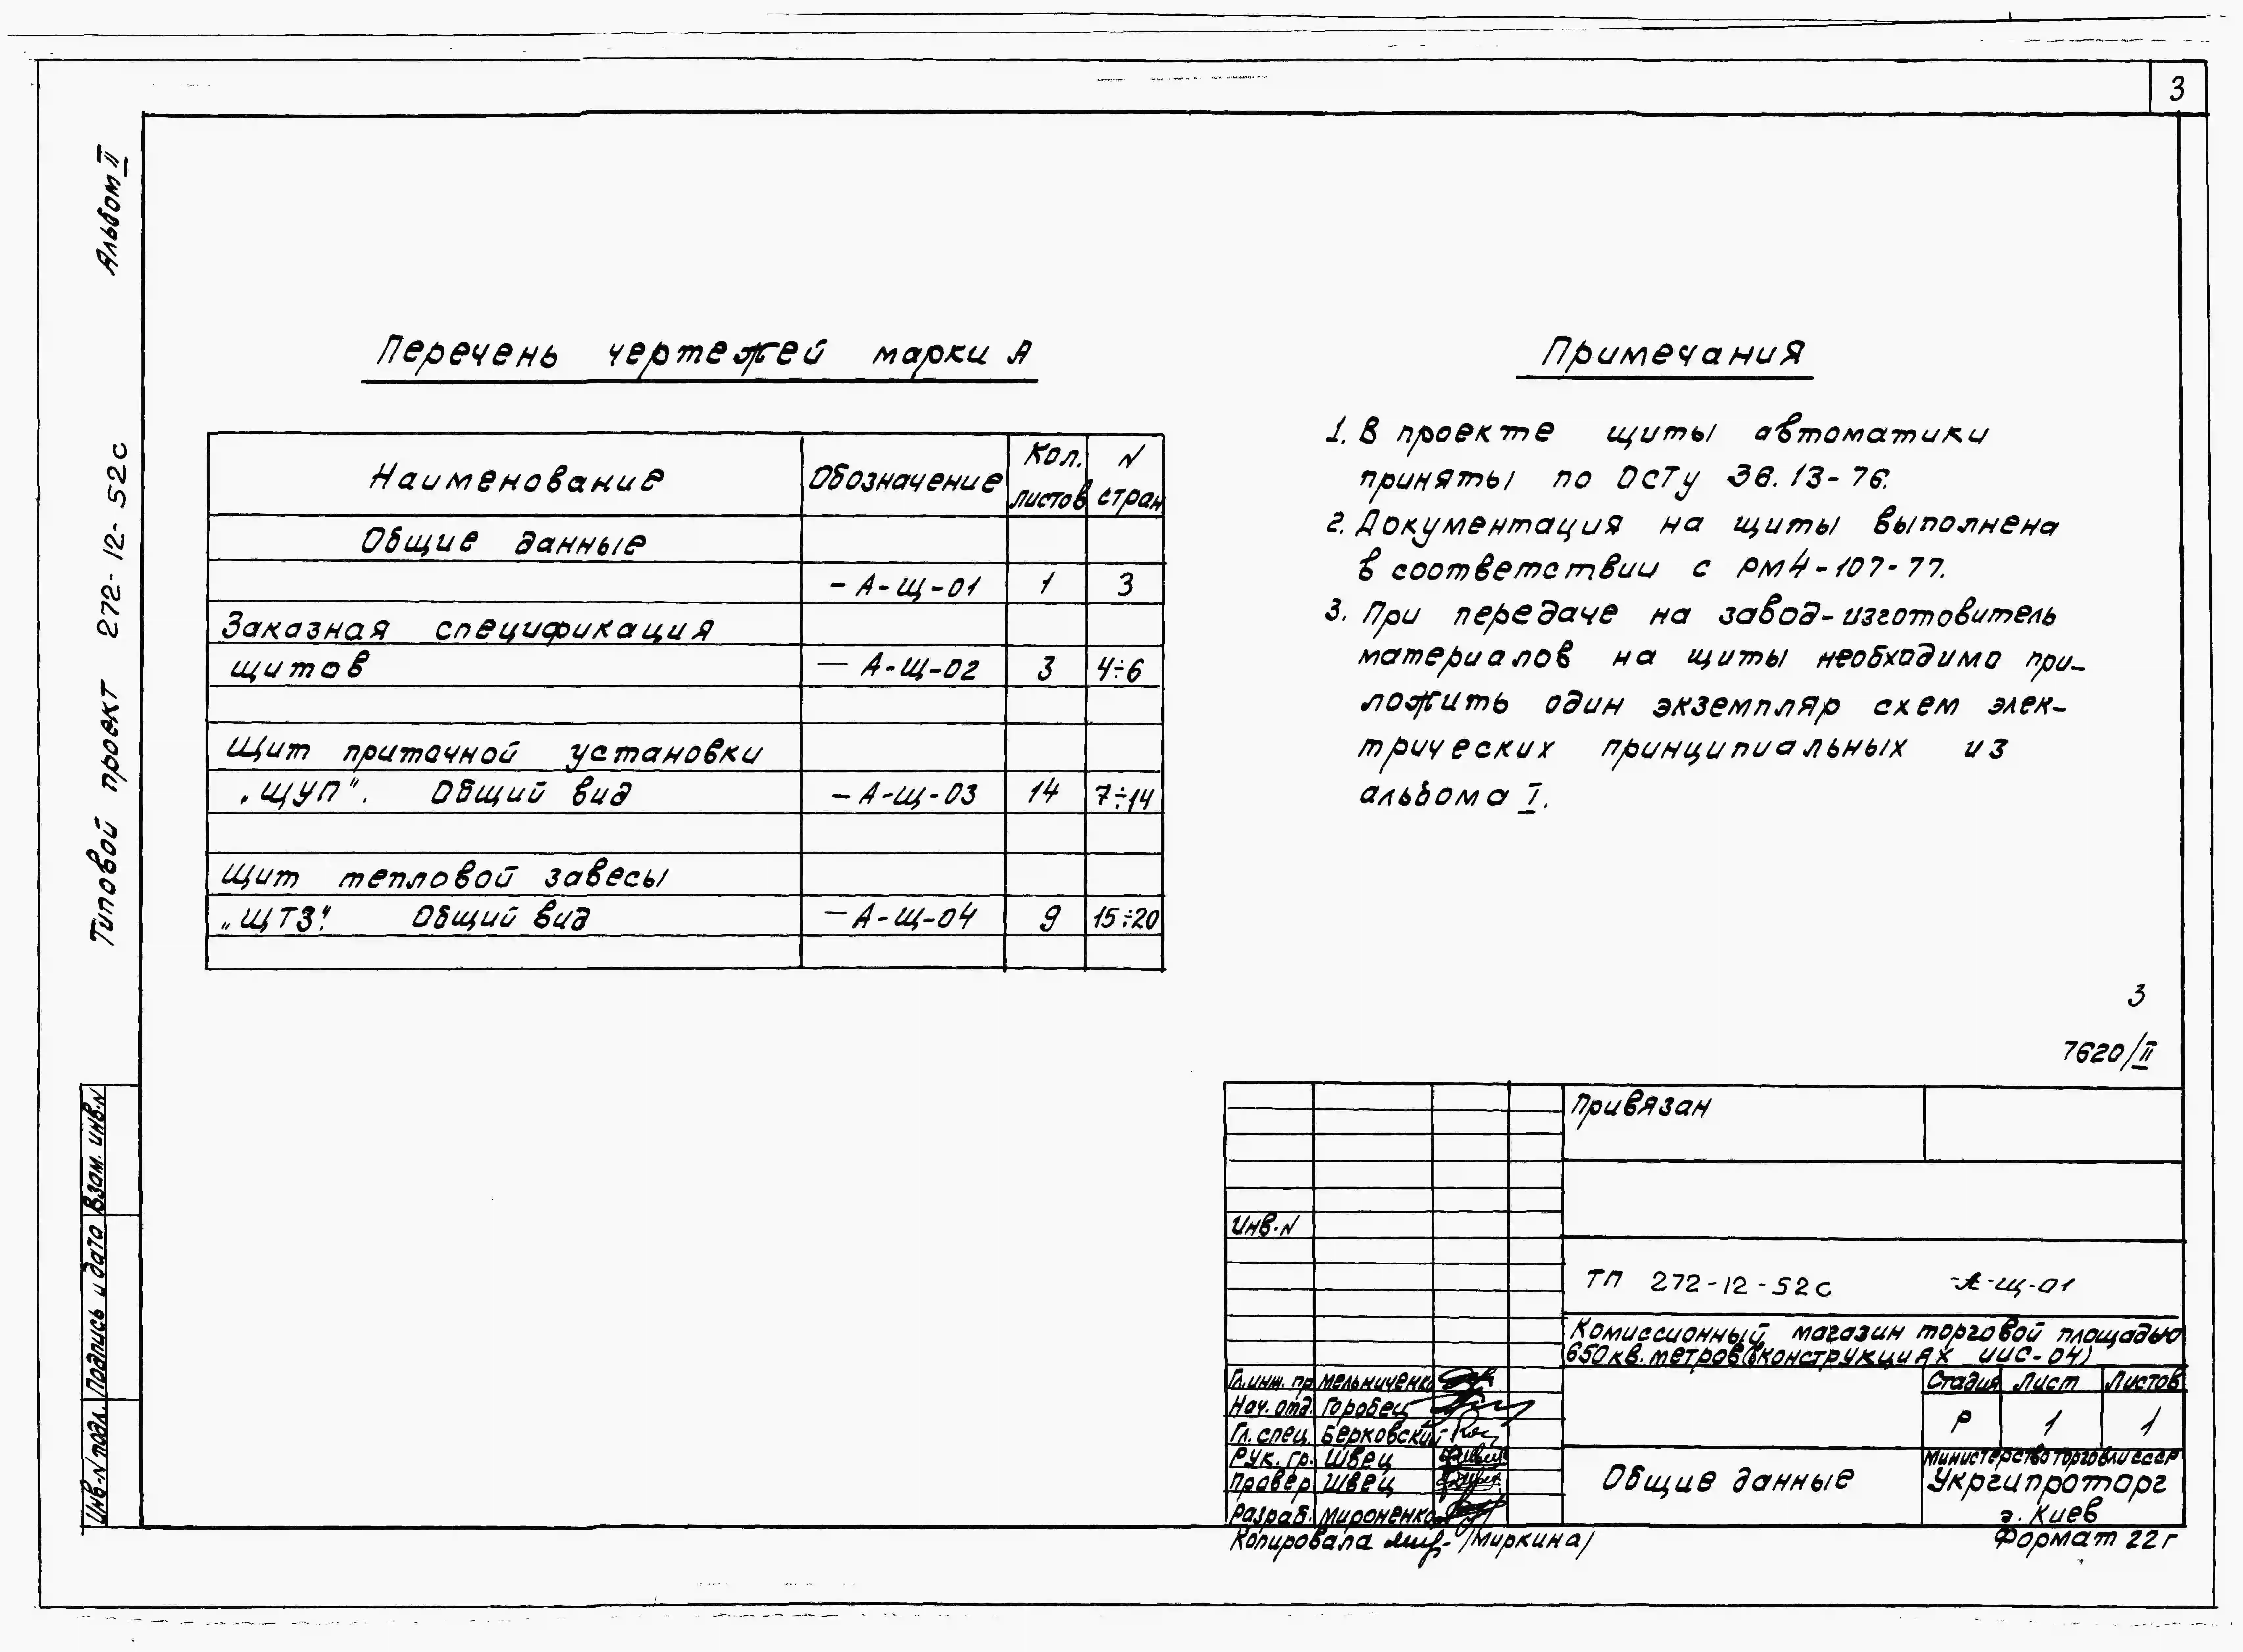 3
Альбом II
Типовой проект 272-12-52с
Перечень чертежей марки А
Наименование Обозначение Кол. листов N стран
Общие данные
- А-Щ-01 1 3
Заказная спецификация
щитов — А-Щ-02 3 4÷6
Щит приточной установки
"ЩУП". Общий вид - А-Щ-03 14 7÷14
Щит тепловой завесы
„ЩТЗ". Общий вид - А-Щ-04 9 15÷20
Примечания
1. В проекте щиты автоматики
приняты по ОСТу 36.13-76.
2. Документация на щиты выполнена
в соответствии с РМ4-107-77.
3. При передаче на завод-изготовитель
материалов на щиты необходимо при-
ложить один экземпляр схем элек-
трических принципиальных из
альбома I.
3
7620/II
Привязан
Инв.N
ТП 272-12-52с -А-Щ-01
Комиссионный магазин торговой площадью
650 кв. метров (в конструкциях ИИС-04)
Гл.инж. пр Мельниченко
Нач. отд. Горобец
Гл. спец. Берковский
Рук. гр. Швец
Провер Швец
Разраб. Мироненко
Стадия Лист Листов
Р 1 1
Общие данные
Министерство торговли СССР
Укргипроторг
г. Киев
Копировала /Миркина/
Формат 22г
Взам. инв.N
Подпись и дата
Инв.N подл.